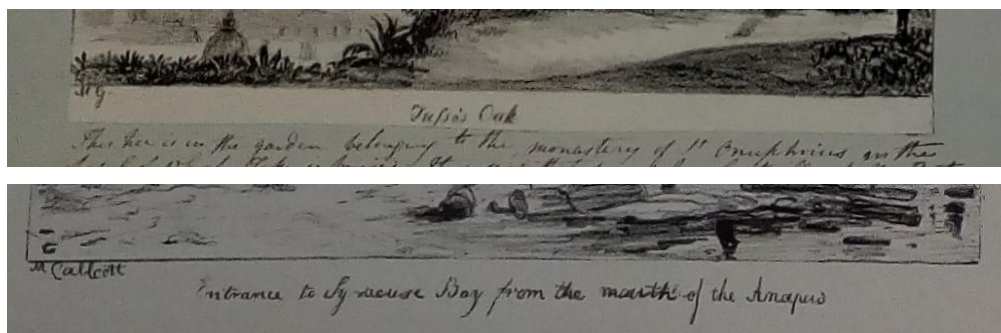 M G.
Tasso's Oak
This tree is in the garden belonging to the monastery of St Onuphrius, in the
M Callcott
Entrance to Syracuse Bay from the mouth of the Anapus